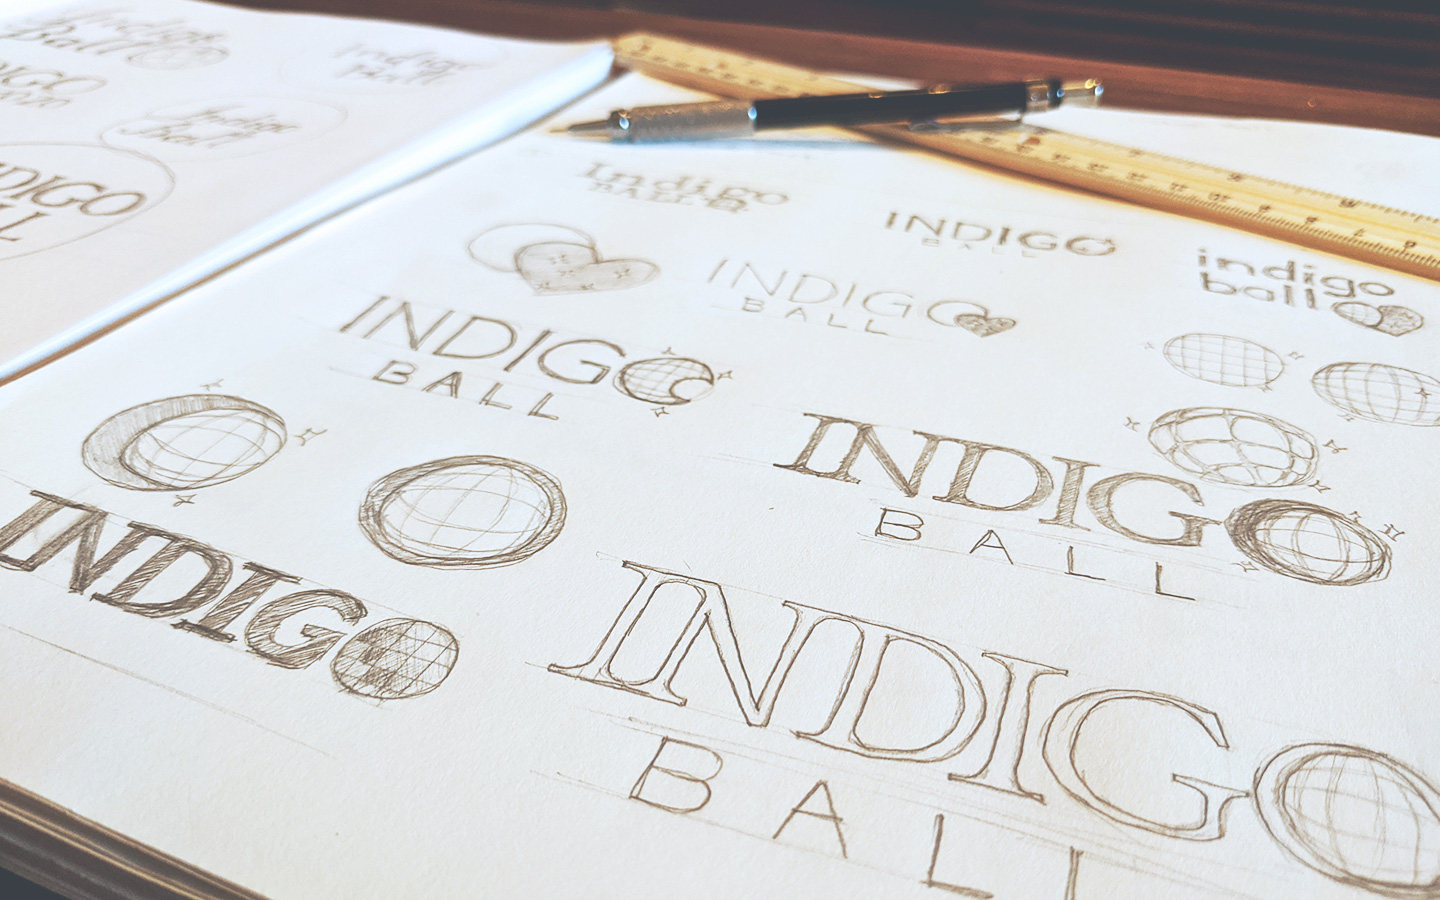 Indigo
Ball
INDIGO
Indigo
Ball
INDIGO
Indigo
Ball
INDIGO
BALL
INDIGO
BALL
indigo
ball
INDIGO
BALL
INDIGO
BALL
INDIGO
BALL
INDIGO
INDIGO
BALL